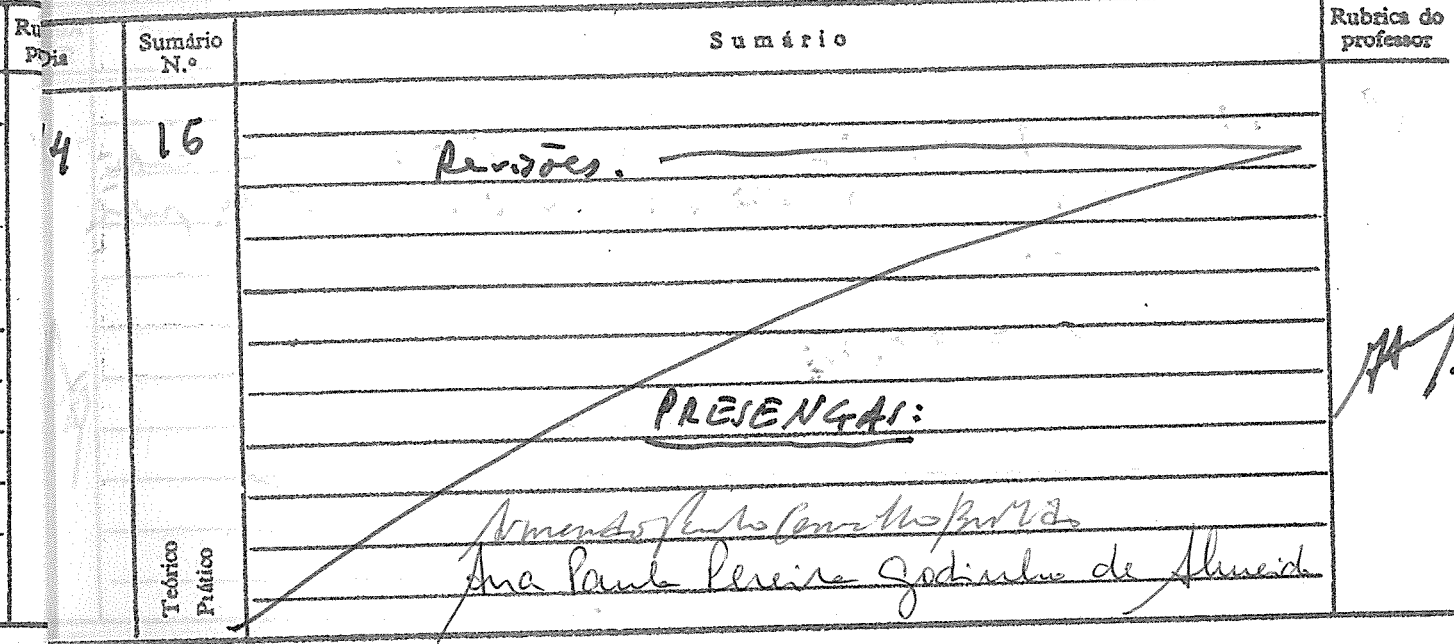 Ru
Dia
Sumário
N.º
Sumário
Rubrica do
professor
4
16
Revisões.
PRESENÇAS:
Armando Paulo Carvalho
Ana Paula Pereira Godinho de Almeida
Teórico
Prático